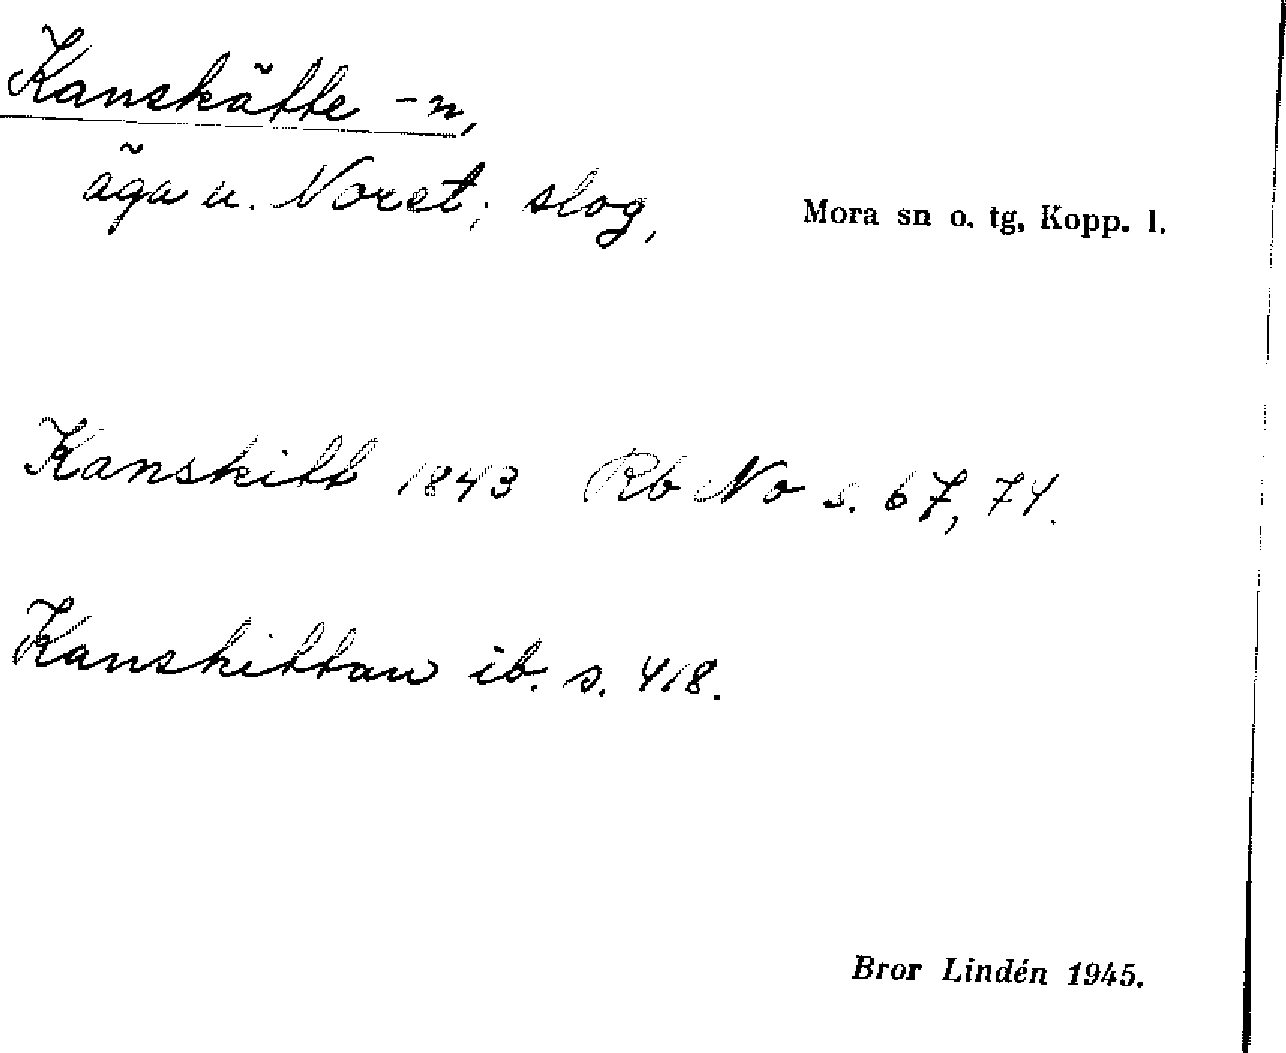 Kanskätte -n,
äga u. Noret; slog,
Mora sn o. tg, Kopp. l.
Kanskitt 1843 Rb No s. 67, 74.
Kanskittan ib. s. 418.
Bror Lindén 1945.